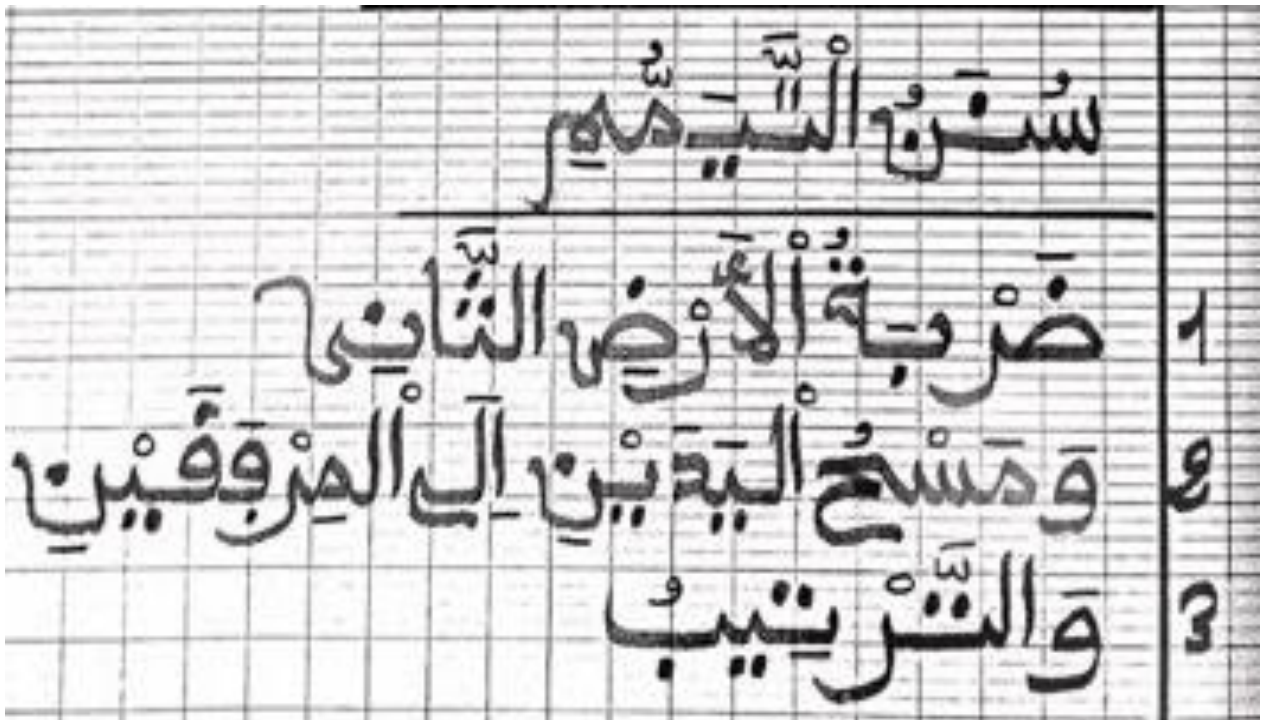 سُنَنُ الْتَّيَمُّمِ
1 ضَرْبَةُ اْلأَرْضِ الثَّانِي
2 وَمَسْحُ اْليَدَيْنِ اِلَى اْلمِرْفَقَيْنِ
3 وَالتَّرْتِيبُ